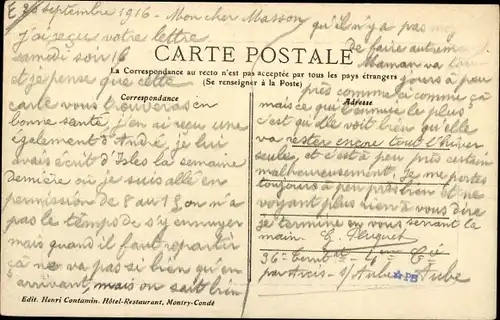 E 20 septembre 1916 - Mon cher Masson
j'ai reçu votre lettre
samedi soir 16
et je pense que cette
CARTE POSTALE
La Correspondance au recto n'est pas acceptée par tous les pays étrangers
(Se renseigner à la Poste)
Correspondance
Adresse
carte vous trouveras en
bonne santé, j'en ai reçu une
également d'André, je lui
avais écrit d'Isles la semaine
dernière où je suis allé en
permission de 8 au 15 on n'a
pas le temps de s'ennuyer
mais quand il faut repartir
ça ne va pas si bien qu'en
arrivant, mais on sait bien
qu'il n'y a pas moy
de faire autrement
Maman va tou
jours à peu
près comme ci comme ça
mais ce qui l'ennuie le plus
c'est qu'elle voit bien qu'elle
va rester encore tout l'hiver
seule, et c'est à peu près certain
malheureusement. Je me portes
toujours à peu près bien et ne
voyant plus rien à vous dire
je termine en vous serrant la
main. Huguet
36e Territ 4eme Cie
par Arcis s/ Aube Aube
PB
Edit. Henri Contamin. Hôtel-Restaurant, Montry-Condé